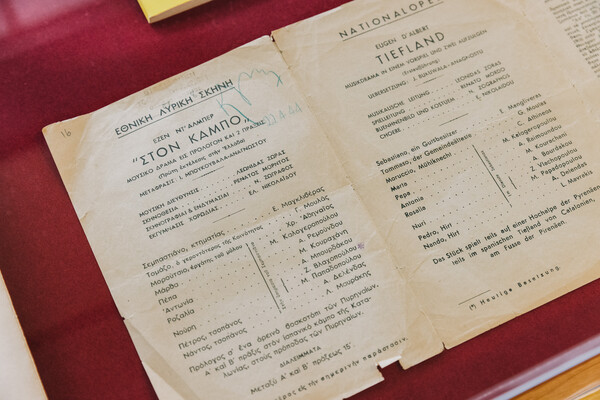 16
ΕΘΝΙΚΗ ΛΥΡΙΚΗ ΣΚΗΝΗ
ΕΖΕΝ ΝΤ' ΑΛΜΠΕΡ
"ΣΤΟΝ ΚΑΜΠΟ"
ΜΟΥΣΙΚΟ ΔΡΑΜΑ ΣΕ ΠΡΟΛΟΓΟ ΚΑΙ 2 ΠΡΑΞΕΙΣ
(Πρώτη ἐκτέλεσις στὴν Ἑλλάδα)
ΜΕΤΑΦΡΑΣΙΣ: Ι. ΜΠΟΥΚΟΥΒΑΛΑ-ΑΝΑΓΝΩΣΤΟΥ
ΜΟΥΣΙΚΗ ΔΙΕΥΘΥΝΣΙΣ : ΛΕΩΝΙΔΑΣ ΖΩΡΑΣ
ΣΚΗΝΟΘΕΣΙΑ : ΡΕΝΑΤΟΣ ΜΟΡΝΤΟΣ
ΣΚΗΝΟΓΡΑΦΙΑΙ & ΕΝΔΥΜΑΣΙΑΙ : Ν. ΖΩΓΡΑΦΟΣ
ΕΚΓΥΜΝΑΣΙΣ ΧΟΡΩΔΙΑΣ : ΕΛ. ΝΙΚΟΛΑΪΔΟΥ
Σεμπαστιάνο, κτηματίας Ε. Μαγκλιβέρας
Τομάζο, ὁ γεροντότερος τῆς Κοινότητος Γ. Μουλᾶς
Μορούτσιο, ἐργάτης τοῦ μύλου Χρ. Ἀθηναῖος
Μάρθα Μ. Καλογεροπούλου
Πέπα Α. Ρεμούνδου
Ἀντωνία Μ. Κουραχάνη
Ροζαλία Α. Μπουρδάκου
Νούρη Ζ. Βλαχοπούλου
Μ. Παπαδοπούλου
Πέτρος, τσοπάνος Α. Δελένδας
Νάντος, τσοπάνος Λ. Μαυράκης
Πρόλογος σ' ἕνα ὀρεινὸ βοσκοτόπι τῶν Πυρηναίων.
Α' καὶ Β' πρᾶξις στὸν ἱσπανικὸ κάμπο τῆς Κατα-
λωνίας, στοὺς πρόποδας τῶν Πυρηναίων.
ΔΙΑΛΕΙΜΜΑΤΑ
Μεταξὺ Α' καὶ Β' πράξεως 15'
εἰς τὴν σημερινὴν παράστασιν.
NATIONALOPE
EUGEN D'ALBERT
TIEFLAND
MUSIKDRAMA IN EINEM VORSPIEL UND ZWEI AUFZUGEN
(Erstaufführung)
UEBERSETZUNG : J. BUKUWALA-ANAGNOSTU
MUSIKALISCHE LEITUNG : LEONIDAS ZORAS
SPIELLEITUNG : RENATO MORDO
BUEHNENBILD UND KOSTUEM : N. ZOGRAFOS
CHOERE : E. NIKOLAIDOU
Sebastiano, ein Gutsbesitzer E. Mangliveras
Tommaso, der Gemeindeälteste G. Moulas
Moruccio, Mühlknecht C. Athineos
Marta M. Kalogeropoulou
Pepa A. Remoundou
Antonia M. Kourachani
Rosalia A. Bourdakou
Nuri Z. Vlachopoulou
M. Papadopoulou
Pedro, Hirt A. Delendas
Nando, Hirt L. Mavrakis
Das Stück spielt teils auf einer Hochalpe der Pyrenäen,
teils im spanischen Tiefland von Catalonien,
am Fusse der Pyrenäen.
(*) Heutige Besetzung.